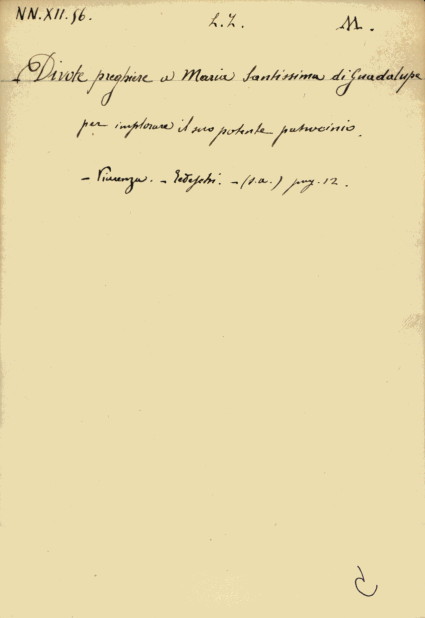 NN.XII.56. L.Z. M.
Divote preghiere a Maria Santissima di Guadalupe
per implorare il suo potente patrocinio.
- Vicenza. - Tedeschi. - (s.a.) pag. 12.